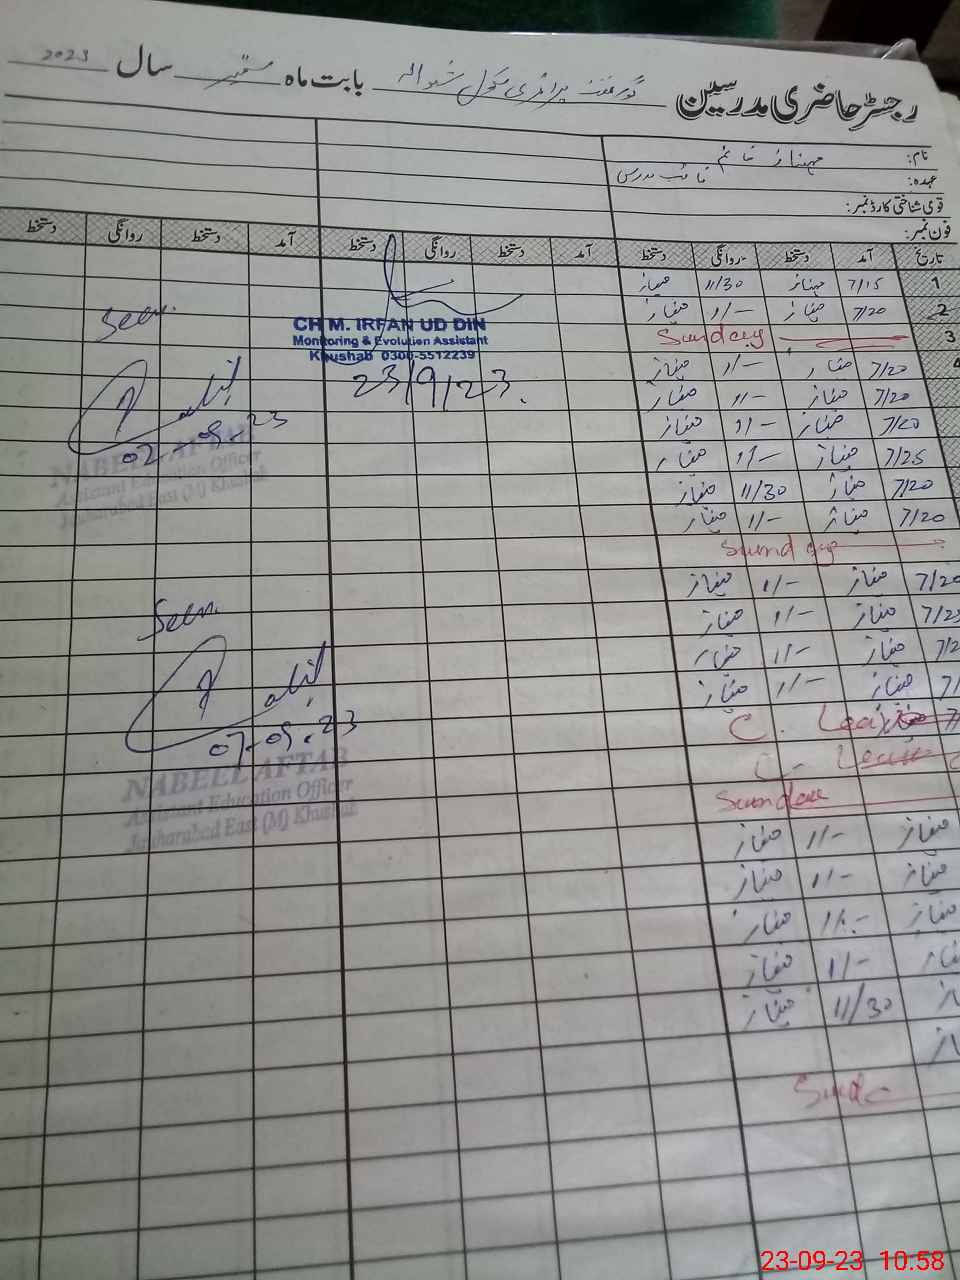 رجسٹر حاضری مدرسین گورنمنٹ پرائمری سکول بابت ماہ ستمبر سال 2023
نام: مہناز خانم
عہدہ: نائب مدرس
قومی شناختی کارڈ نمبر:
فون نمبر:
تاریخ آمد دستخط روانگی دستخط آمد دستخط روانگی دستخط آمد دستخط روانگی دستخط
1 7/15 مہناز 11/30 مہناز
2 7/20 مہناز 1/- مہناز
3 Sunday
4 7/20 مہناز 1/- مہناز
7/20 مہناز 1/- مہناز
7/20 مہناز 1/- مہناز
7/25 مہناز 1/- مہناز
7/20 مہناز 11/30 مہناز
7/20 مہناز 1/- مہناز
Sunday
7/20 مہناز 1/- مہناز
مہناز 1/- مہناز
مہناز 1/- مہناز
مہناز 1/- مہناز
C. Leave
C. Leave
Sunday
مہناز 1/- مہناز
مہناز 1/- مہناز
مہناز 1/- مہناز
1/- مہناز
11/30 مہناز
CH M. IRFAN UD DIN
Monitoring & Evolution Assistant
Khushab 0300-5512239
23/9/23.
Seen.
02-09-23
NABEEL AFTAB
Assistant Education Officer
Jauharabad East (M) Khushab
Seen.
07-09-23
NABEEL AFTAB
Assistant Education Officer
Jauharabad East (M) Khushab
23-09-23 10.58